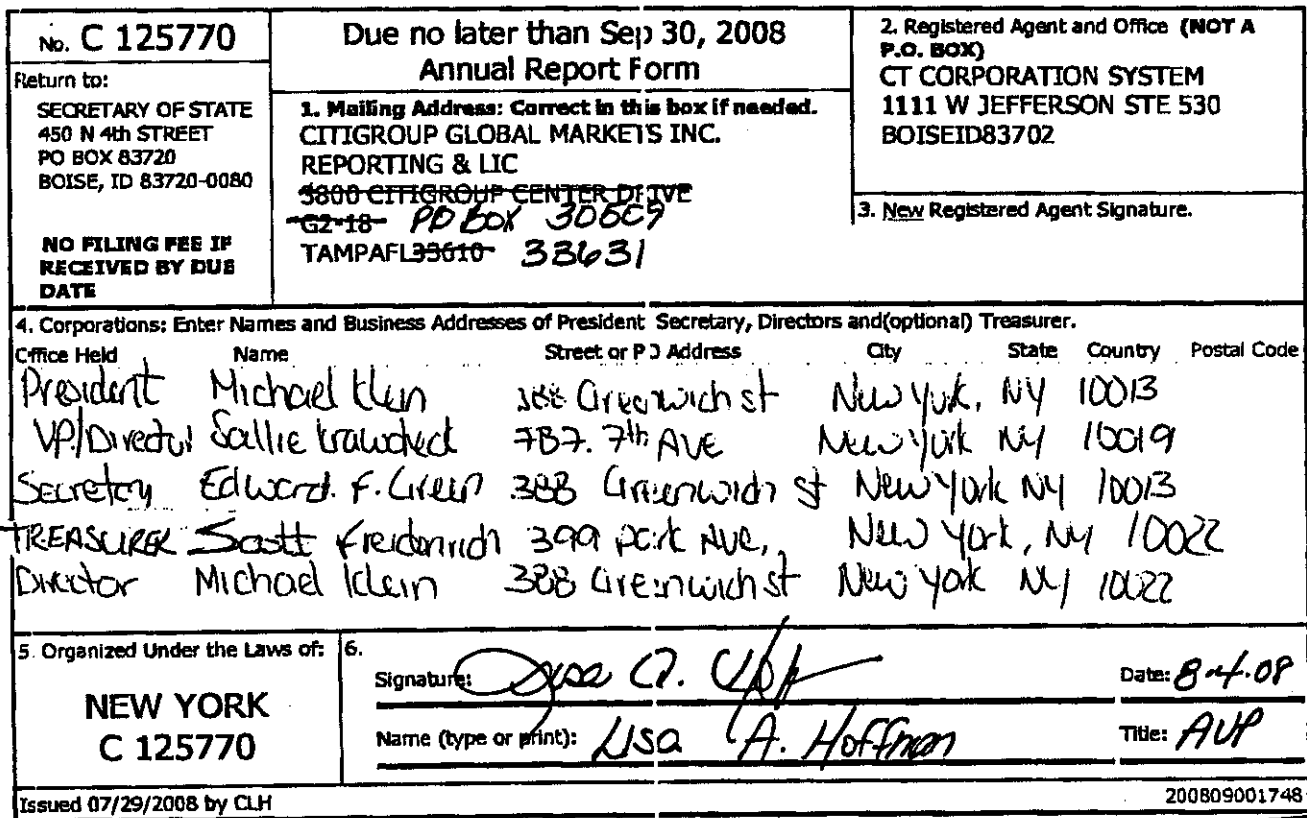 No. C 125770
Return to:
SECRETARY OF STATE
450 N 4th STREET
PO BOX 83720
BOISE, ID 83720-0080
NO FILING FEE IF
RECEIVED BY DUE
DATE
Due no later than Sep 30, 2008
Annual Report Form
1. Mailing Address: Correct in this box if needed.
CITIGROUP GLOBAL MARKETS INC.
REPORTING & LIC
3800 CITIGROUP CENTER DRIVE
G2-18 PO BOX
TAMPAFL33610 33631
2. Registered Agent and Office (NOT A
P.O. BOX)
CT CORPORATION SYSTEM
1111 W JEFFERSON STE 530
BOISEID83702
3. New Registered Agent Signature.
4. Corporations: Enter Names and Business Addresses of President Secretary, Directors and(optional) Treasurer.
Office Held Name Street or PO Address City State Country Postal Code
President Michael Klein 388 Greenwich st New York, NY 10013
VP/Director Sallie Krawcheck 787. 7th AVE New York NY 10019
Secretary Edward. F. Green 388 Greenwich st New York NY 10013
TREASURER Scott Freidenrich 399 park Ave, New York, NY 10022
Director Michael Klein 388 Greenwich st New York NY 10022
5. Organized Under the Laws of:
NEW YORK
C 125770
6.
Signature: Lisa A. Date: 8-4-08
Name (type or print): Lisa A. Hoffman Title: AVP
Issued 07/29/2008 by CLH 200809001748